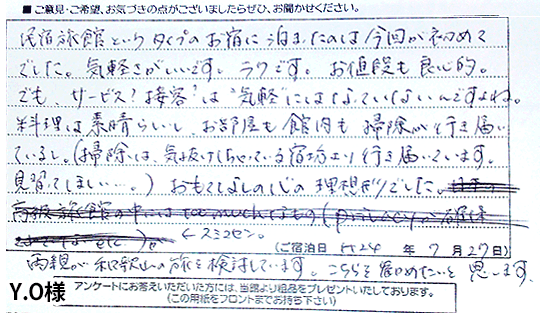 ■ご意見・ご希望、お気づきの点がございましたらぜひ、お聞かせください。
民宿旅館というタイプのお宿に泊まったのは今回が初めて
でした。気軽さがいいです。ラクです。お値段も良心的。
でも、サービス?接客"は"気軽"にはなっていないんですよね。
料理は素晴らしいし、お部屋も館内も掃除が行き届い
ているし。(掃除は、気抜けしちゃっている宿坊より行き届いています。
見習ってほしい…。)おもてなしの心の理想形でした。
高級旅館の中には too much なもの(privacyが確保
されてない etc)が
←スミマセン。
(ご宿泊日 H24 年 7 月 27 日)
両親が和歌山の旅を検討しています。こちらを留めたいと思います。
Y.O様
アンケートにお答えいただいた方には、当館より粗品をプレゼントいたしております。
(この用紙をフロントまでお持ち下さい)